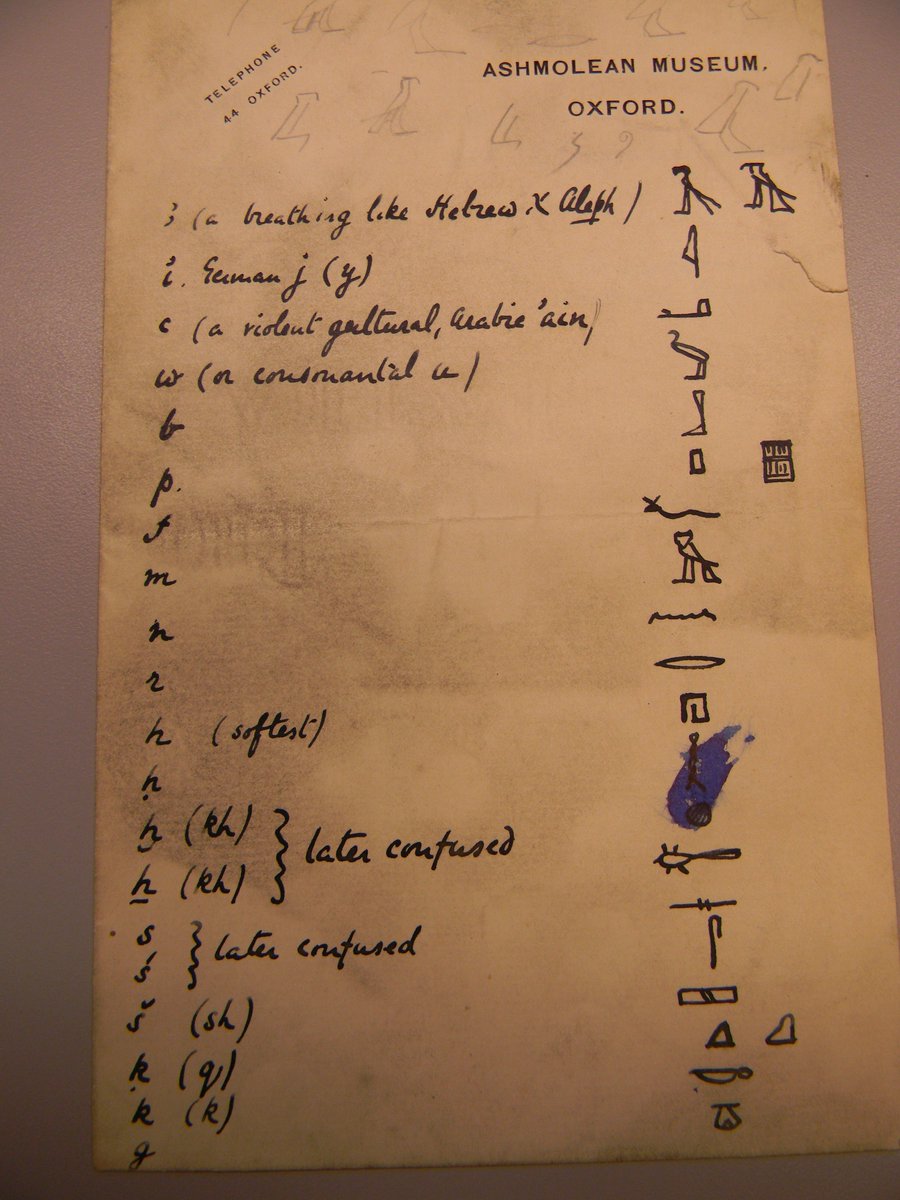 TELEPHONE
44 OXFORD.
ASHMOLEAN MUSEUM,
OXFORD.
ꜣ (a breathing like Hebrew א Aleph)
i̓. German j (y)
c (a violent guttural, Arabic 'ain)
w (or consonantal u)
b
p.
f
m
n
r
h (softest)
ḥ
ḫ (kh)
ẖ (kh) } later confused
s
ś } later confused
š (sh)
ḳ (q)
k (k)
g